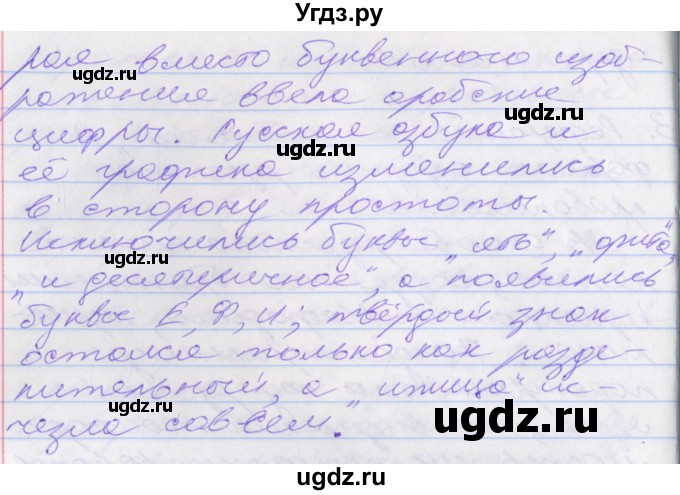 Угдз.ру
рая вместо буквенного изоб-
ражения ввела арабские
цифры. Русская азбука и
её графика изменились
в сторону простоты.
Исключились буквы „ять“, „фита“,
„и десятеричное“, а появились
буквы Е, Ф, И; твёрдый знак
остался только как разде-
лительный, а „ижица“ ис-
чезла совсем.
ugdz.ru
ugdz.ru
ugdz.ru
ugdz.ru
ugdz.ru
ugdz.ru
ugdz.ru
ugdz.ru
ugdz.ru
ugdz.ru
ugdz.ru
ugdz.ru
ugdz.ru
ugdz.ru